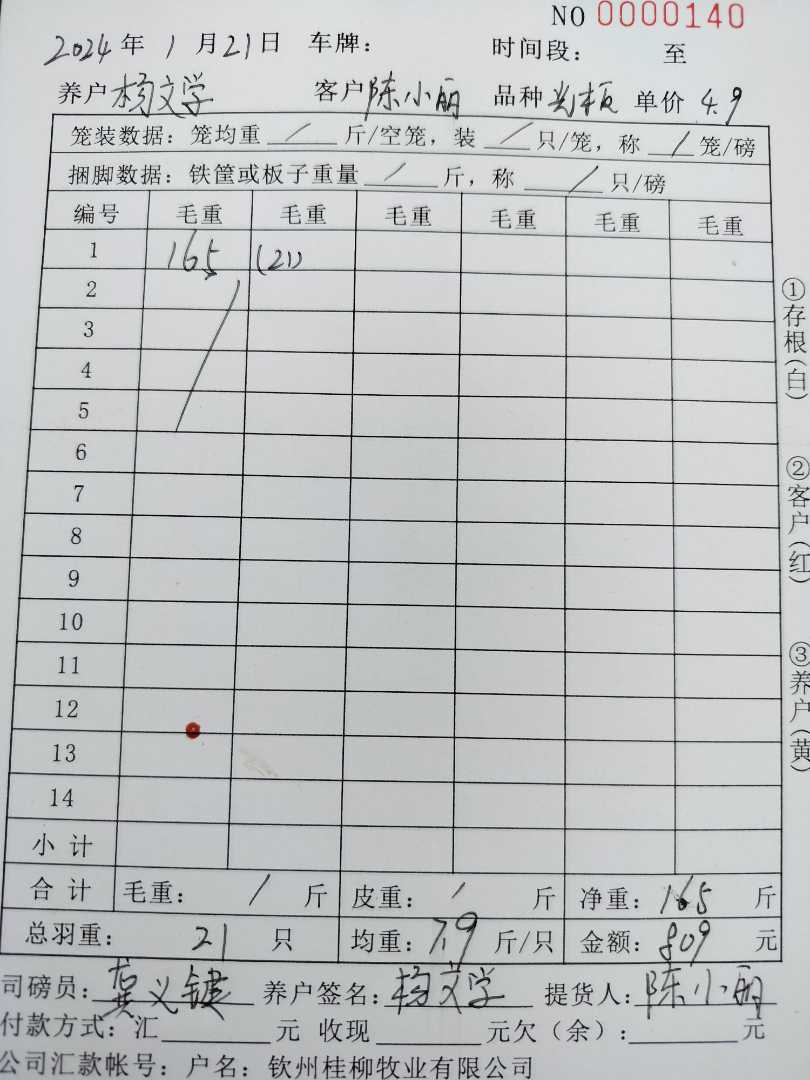 NO 0000140
2024 年 1 月 21 日 车牌: 时间段: 至
养户 杨文学 客户 陈小丽 品种 单价 4.9
笼装数据: 笼均重 / 斤/空笼, 装 / 只/笼, 称 / 笼/磅
捆脚数据: 铁筐或板子重量 / 斤, 称 / 只/磅
编号 毛重 毛重 毛重 毛重 毛重 毛重
1 165 (21)
2
3
4
5
6
7
8
9
10
11
12
13
14
小计
合计 毛重: / 斤 皮重: / 斤 净重: 165 斤
总羽重: 21 只 均重: 7.9 斤/只 金额: 809 元
司磅员: 龚义键 养户签名: 杨文学 提货人: 陈小丽
付款方式: 汇 元 收现 元欠(余): 元
公司汇款帐号: 户名: 钦州桂柳牧业有限公司
①存根(白)
②客户(红)
③养户(黄)